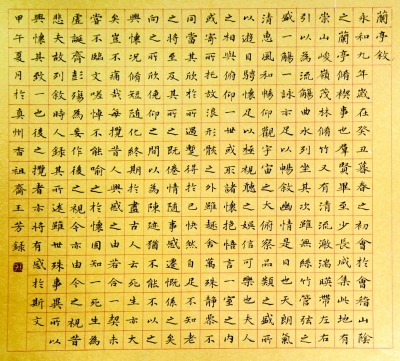 蘭亭敘
永和九年歲在癸丑暮春之初會於會稽山陰
之蘭亭脩稧事也群賢畢至少長咸集此地有
崇山峻嶺茂林脩竹又有清流激湍暎帶左右
引以為流觴曲水列坐其次雖無絲竹管弦之
盛一觴一詠亦足以暢敘幽情是日也天朗氣
清惠風和暢仰觀宇宙之大俯察品類之盛所
以遊目騁懷足以極視聽之娛信可樂也夫人
之相與俯仰一世或取諸懷抱悟言一室之內
或寄所托放浪形骸之外雖趣舍萬殊靜躁不
同當其欣於所遇蹔得於己快然自足不知老
之將至及其所之既倦情隨事遷感慨係之矣
向之所欣俛仰之間以為陳迹猶不能不以之
興懷況脩短隨化終期於盡古人云死生亦大
矣豈不痛哉每攬昔人興感之由若合一契未
嘗不臨文嗟悼不能喻之於懷固知一死生為
虛誕齊彭殤為妄作後之視今亦由今之視昔
悲夫故列敘時人錄其所述雖世殊事異所以
興懷其致一也後之攬者亦將有感於斯文
甲午夏月於真州吉祖齋王芳錄